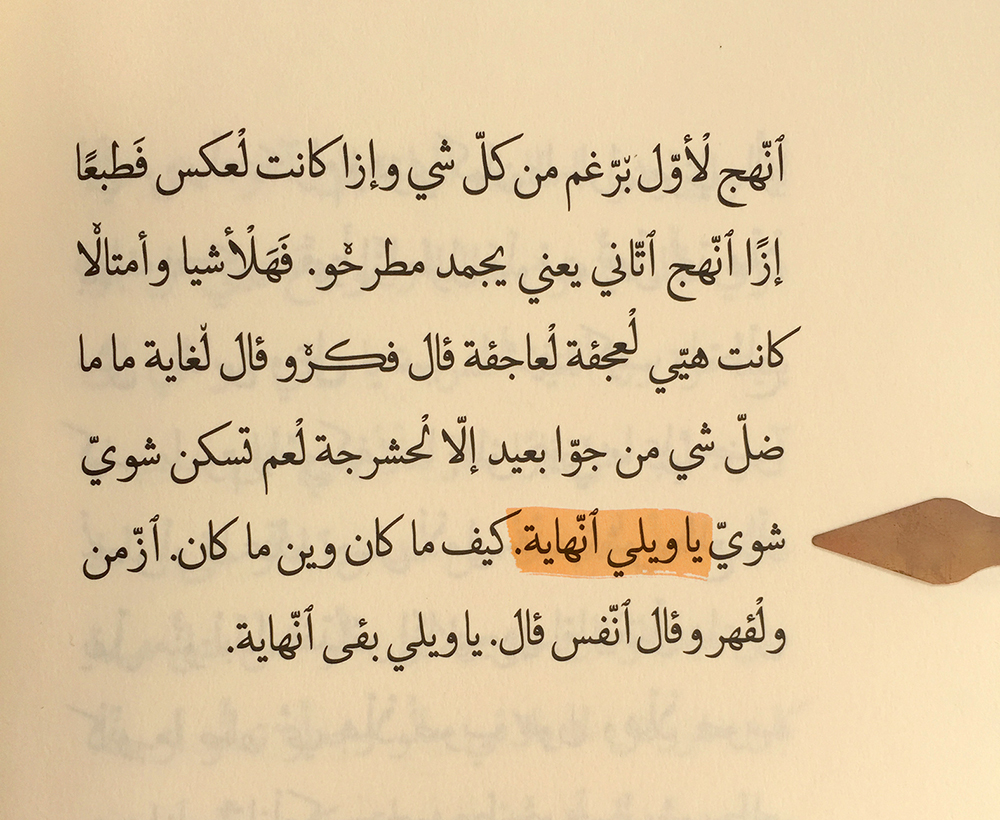 ٱنّهج لْأوّل بْرّغم من كلّ شي وإزا كانت لْعكس فَطبعًا
إزًا ٱنّهج ٱتّاني يعني يجمد مطرحْو. فَهَلْأشيا وأمتالْا
كانت هيّي لْعجقة لْعاجقة قال فكرْو قال لْغاية ما ما
ضلّ شي من جوّا بعيد إلّا لْحشرجة لْعم تسكن شويّ
شويّ يا ويلي ٱنّهاية. كيف ما كان وين ما كان. ٱزّمن
ولْقهر وقال ٱنّفس قال. يا ويلي بقى ٱنّهاية.